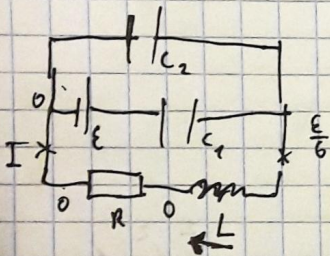 C₂
0
ε
C₁
I
ε/6
0
R
0
L